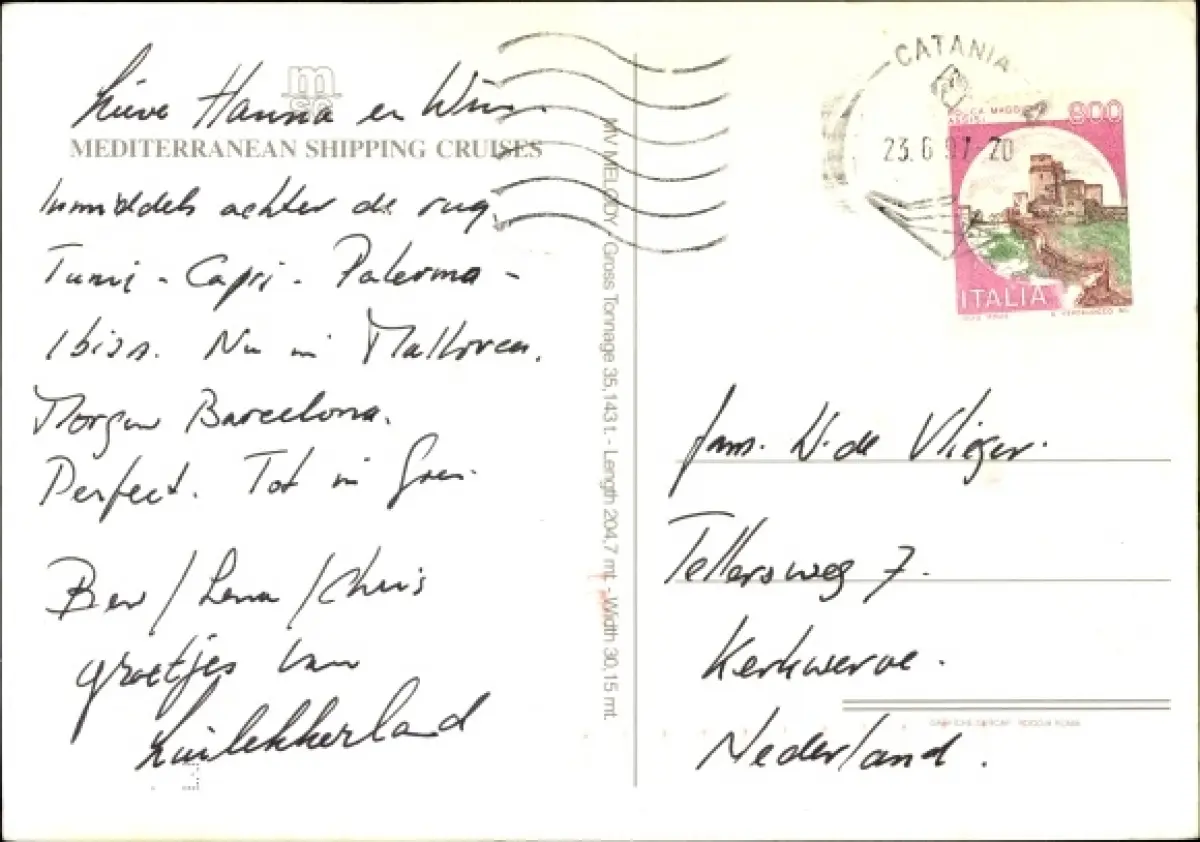 Lieve Hanna en Wim.
msc
MEDITERRANEAN SHIPPING CRUISES
Inmiddels achter de rug
Tunis - Capri - Palermo -
Ibiza. Nu in Mallorca.
Morgen Barcelona.
Perfect. Tot in
Ben / Lena / Chris
groetjes van
Luilekkerland
MV MELODY - Gross Tonnage 35,143 t. - Length 204,7 mt. - Width 30,15 mt.
CATANIA
23.6.97-20
ROCCA MAGGIORE
ASSISI
800
ITALIA
fam. W. de Vlieger.
Tellersweg 7.
Kerkwerve.
Nederland.